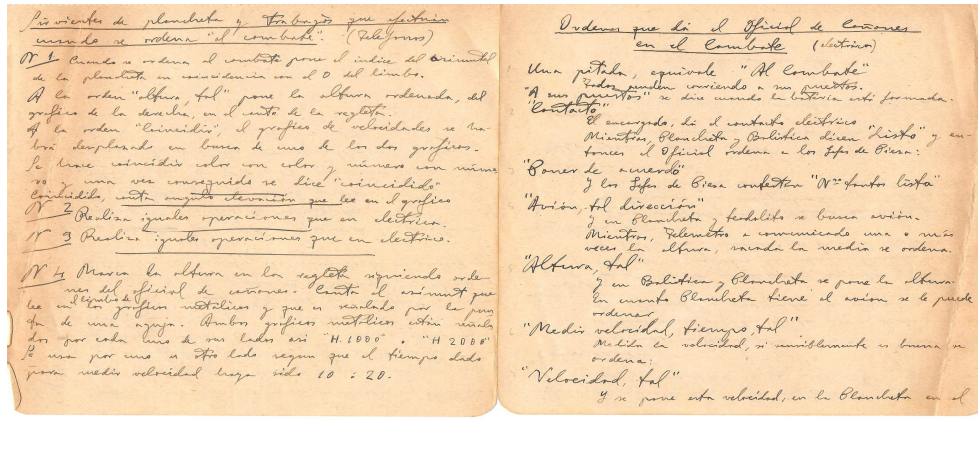 Sirvientes de plancheta y trabajos que efectúan
cuando se ordena "al combate". (Teléfonos)
Nº 1 Cuando se ordena al combate pone el índice del azimutal
de la plancheta en coincidencia con el 0 del limbo.
A la orden "altura, tal" pone la altura ordenada, del
gráfico de la derecha, en el canto de la regleta.
A la orden "Coincidir", el gráfico de velocidades se ha-
brá desplazado en busca de uno de los dos gráficos.
Se hace coincidir color con color y número con núme
ro y una vez conseguido se dice "coincidido"
Coincidido, canta angulo elevación que lee en el gráfico
Nº 2 Realiza iguales operaciones que en eléctrica.
Nº 3 Realiza iguales operaciones que en eléctrico.
Nº 4 Marca la altura en la regleta siguiendo orde
nes del oficial de cañones. Canta el azimut que
lee en el limbo de los gráficos metálicos y que es señalado por la pun
ta de una aguja. Ambos gráficos metálicos están señala
dos por cada uno de sus lados así "H. 1000" o "H 2000"
Se usa por uno u otro lado segun que el tiempo dado
para medir velocidad haya sido 10 ó 20.
Ordenes que dá el Oficial de Cañones
en el Combate (electrico)
Una pitada, equivale "Al Combate"
Todos acuden corriendo a sus puestos.
"A sus puestos" se dice cuando la batería está formada.
"Contacto"
El encargado, dá el contacto eléctrico
Mientras, Plancheta y Balística dicen "listo" y en-
tonces el Oficial ordena a los Jefes de Pieza:
"Poner de acuerdo"
Y los Jefes de Pieza contestan "Nº tantos listo"
"Avión, tal dirección"
Y en Plancheta y teodolito se busca avión.
Mientras, Telemetro a comunicado una o más
veces la altura, sacada la media se ordena.
"Altura, tal"
Y en Balística y Plancheta se pone la altura.
En cuanto Plancheta tiene el avion se le puede
ordenar
"Medir velocidad, tiempo, tal"
Medida la velocidad, si sensiblemente es buena se
ordena:
"Velocidad, tal"
Y se pone esta velocidad, en la Plancheta en el